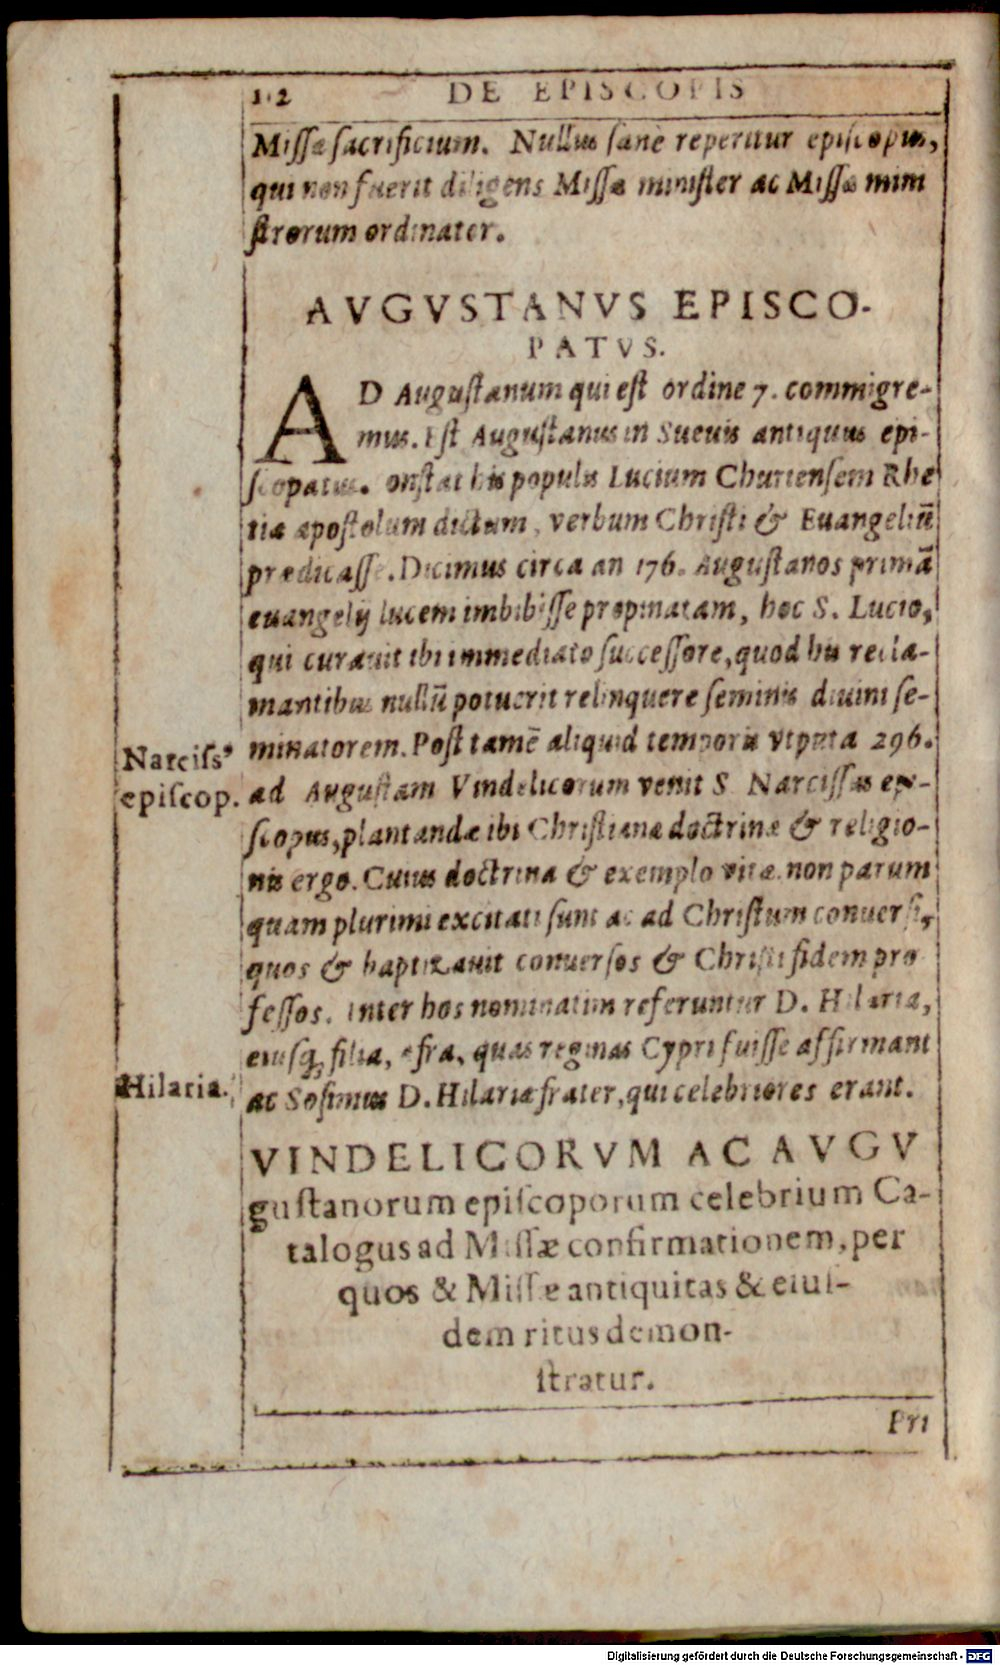 112 DE EPISCOPIS
Missæ sacrificium. Nullus sanè reperitur episcopus,
qui non fuerit diligens Missæ minister ac Missæ mini
strorum ordinator.
AVGVSTANVS EPISCO-
PATVS.
AD Augustanum qui est ordine 7. commigre-
mus. Est Augustanus in Sueuis antiquus epi-
scopatus. onstat his populis Lucium Churiensem Rhe
tiæ apostolum dictum, verbum Christi & Euangeliũ
prædicasse. Dicimus circa an 176. Augustanos primã
euangelij lucem imbibisse propinatam, hoc S. Lucio,
qui curauit ibi immediato successore, quod his recla-
mantibus nullũ potuerit relinquere seminis diuini se-
minatorem. Post tamẽ aliquid temporis vtputa 296.
Narciss⁹
episcop.
ad Augustam Vindelicorum venit S Narcissus epi-
scopus, plantandæ ibi Christianæ doctrinæ & religio-
nis ergo. Cuius doctrina & exemplo vitæ non parum
quam plurimi excitati sunt ac ad Christum conuersi,
quos & baptizauit conuersos & Christi fidem pro
fessos. Inter hos nominatim referuntur D. Hilaria,
eiusq; filia, Afra, quas reginas Cypri fuisse affirmant
Hilaria.
ac Sosimus D. Hilariæ frater, qui celebriores erant.
VINDELICORVM AC AVGV
gustanorum episcoporum celebrium Ca-
talogus ad Missæ confirmationem, per
quos & Missæ antiquitas & eius-
dem ritus demon-
stratur.
Pri
Digitalisierung gefördert durch die Deutsche Forschungsgemeinschaft - DFG